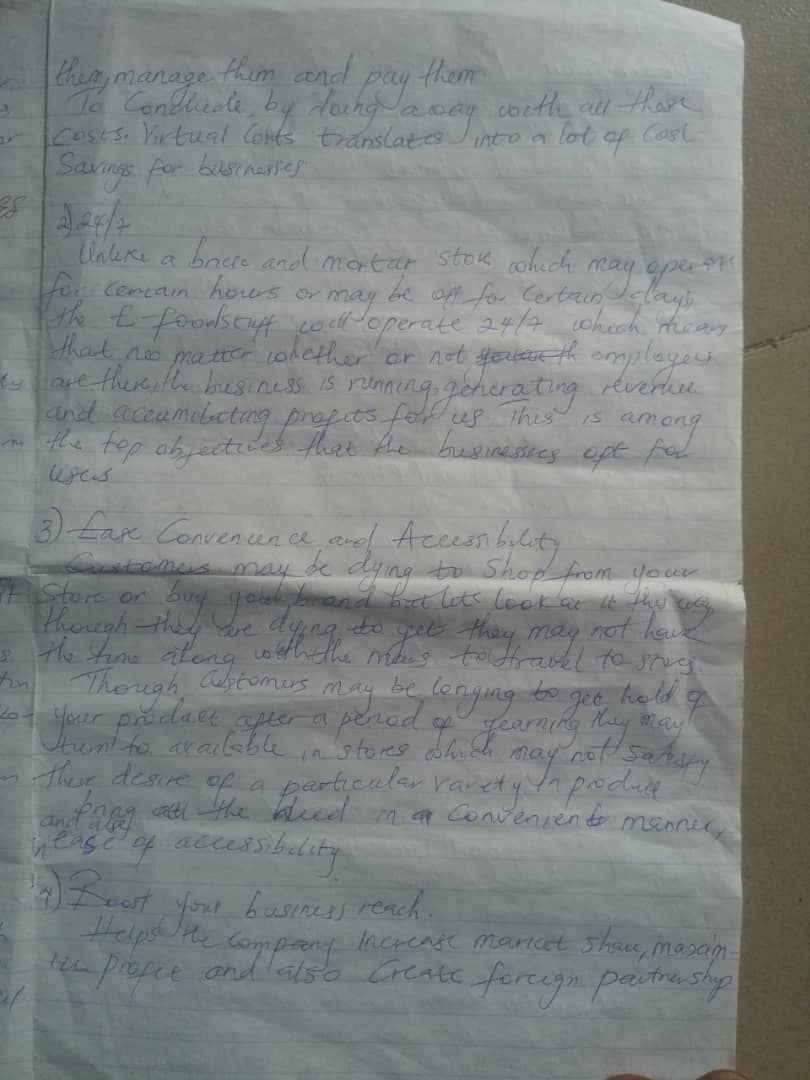 them, manage them and pay them.
To Conclude, by doing away with all those
costs. Virtual Costs translates into a lot of Cost
Savings for businesses
2) 24/7
Unlike a brick and mortar store which may operate
for certain hours or may be off for certain days,
the E-foodstuff will operate 24/7 which means
that no matter whether or not employees
are there, the business is running, generating revenue
and accumulating profits for us. This is among
the top objectives that the businesses opt for
users
3) Ease Convenience and Accessibility
Customers may be dying to Shop from your
Store or buy your brand but lets look at it this way
though they are dying to get they may not have
the time along with the means to travel to stores.
Though Customers may be longing to get hold of
your product after a period of yearning they may
turn to available in stores which may not Satisfy
their desire of a particular variety in produce
bring the in a Convenient manner,
and also
in ease of accessibility
4) Boost your business reach.
Helps the Company Increase market share, maxim-
ize profit and also Create foreign partnership